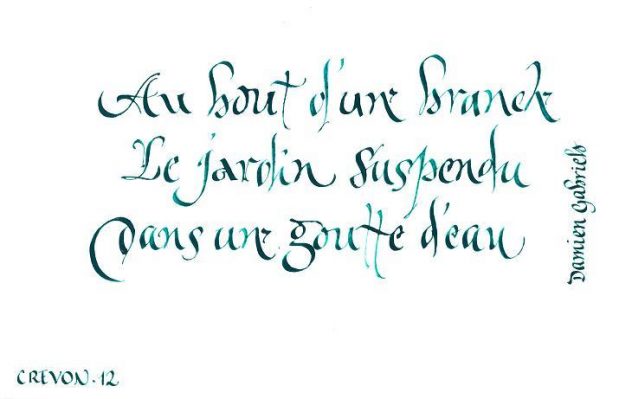 Au bout d'une branche
Le jardin suspendu
Dans une goutte d'eau
Damien Gabriels
CREVON.12